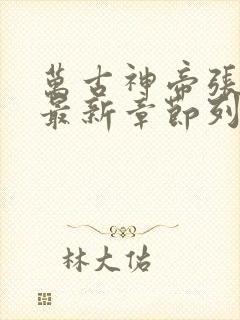 萬古神帝張
最新章節列
林大佑